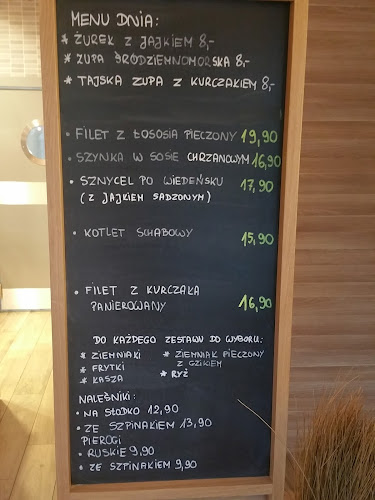 MENU DNIA:
* ŻUREK Z JAJKIEM 8,-
* ZUPA ŚRÓDZIEMNOMORSKA 8,-
* TAJSKA ZUPA Z KURCZAKIEM 8,-
• FILET Z ŁOSOSIA PIECZONY 19,90
• SZYNKA W SOSIE CHRZANOWYM 16,90
• SZNYCEL PO WIEDEŃSKU 17,90
(Z JAJKIEM SADZONYM)
• KOTLET SCHABOWY 15,90
• FILET Z KURCZAKA
PANIEROWANY 16,90
DO KAŻDEGO ZESTAWU DO WYBORU:
* ZIEMNIAKI
* FRYTKI
* KASZA
* ZIEMNIAK PIECZONY
Z GZIKIEM
* RYŻ
NALEŚNIKI:
• NA SŁODKO 12,90
• ZE SZPINAKIEM 13,90
PIEROGI
• RUSKIE 9,90
• ZE SZPINAKIEM 9,90